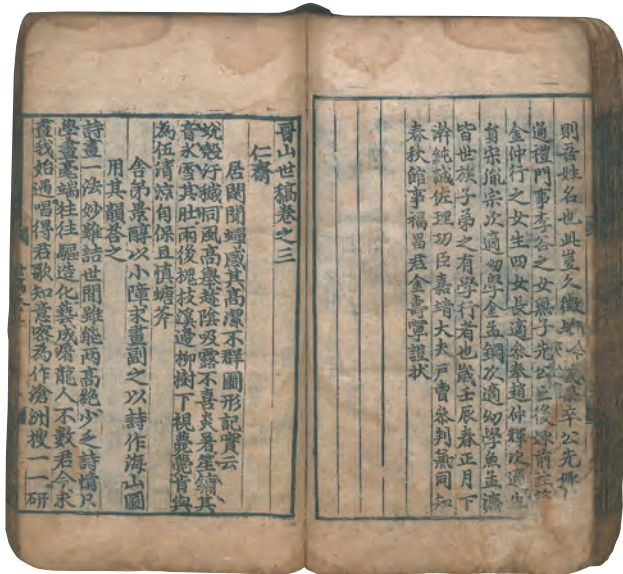 則吾姓名也此豈久徵
卒公先娶
過禮門事李公之女無子先公亡後娶前主簿
金仲行之女生四女長適參奉趙仲輝次適生
員宋胤宗次適幼學金孟鋼次適幼學魚孟
皆世族子弟之有學行者也歲壬辰春正月下
澣純誠佐理功臣嘉靖大夫戶曹參判兼同知
春秋館事福昌君金壽寧謹狀
晉山世稿卷之三
仁齋
居閑聞蟬感其高潔不群圖形記實云
蛻殼汙穢同風高擧趁陰吸露不喜炎暑笙鏞其
音氷雪其肚雨後槐枝溪邊柳樹下視薨薨肯與
為伍清涼自保且慎螗斧
舍弟景醇以小障求畫副之以詩作海山圖
用其韻荅之
詩畫一法妙難詰世間雖能兩高絶少之詩情尺
學畫毫端往往驅造化藝成嗜龍人不數君今求
畫我始遇唱得君歌知意寮為作滄洲搜一一研